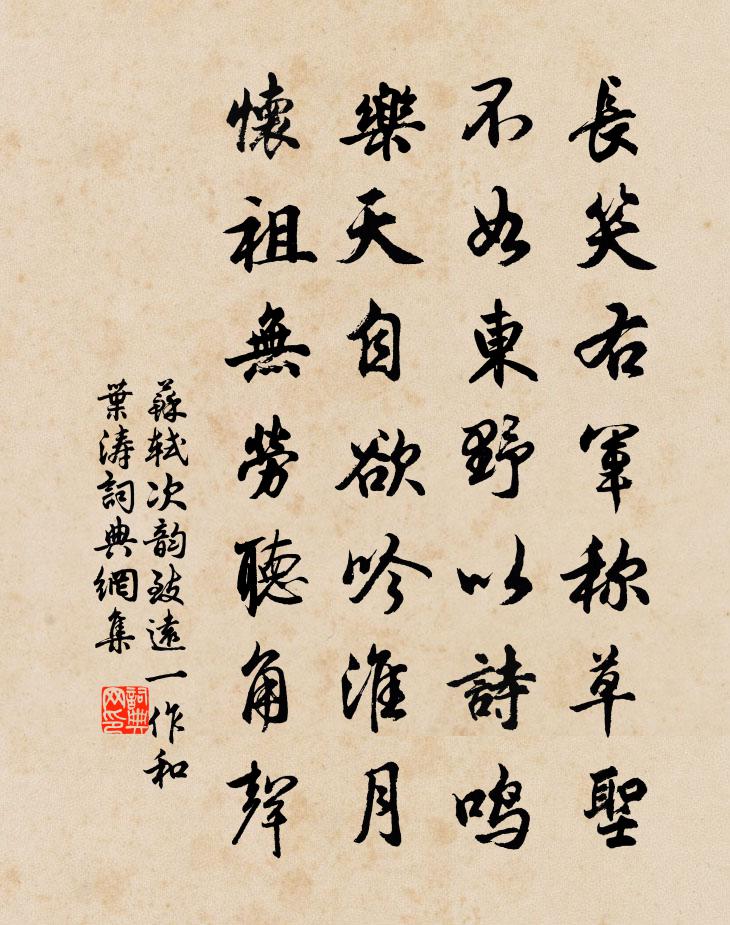 長笑右軍称草聖
不如東野以詩鳴
樂天自欲吟淮月
懷祖無勞聽角聲
蘇軾次韵致遠一作和
葉涛詞典網集
詞典网印